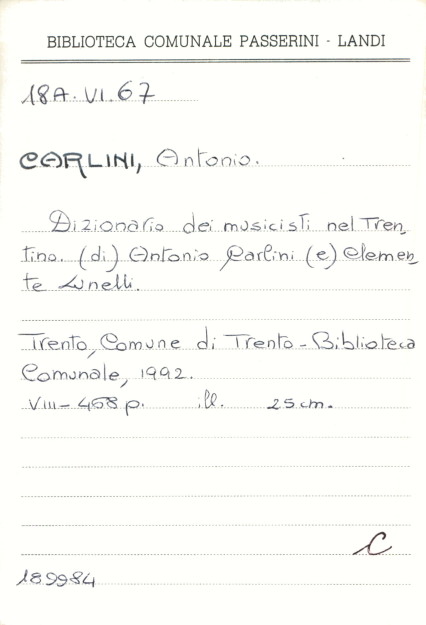 BIBLIOTECA COMUNALE PASSERINI - LANDI
18A. VI. 67
CARLINI, Antonio.
Dizionario dei musicisti nel Tren_
tino. (di) Antonio Carlini (e) Clemen_
te Lunelli.
Trento, Comune di Trento - Biblioteca
Comunale, 1992.
VIII - 468 p. ill. 25 cm.
C
189984